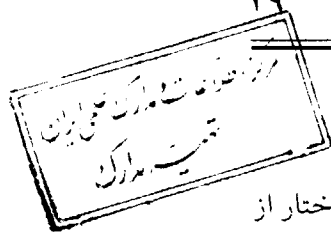 ۲۹
مرکز اطلاعات و مدارک علمی ایران
تهیه مدارک
ختار از